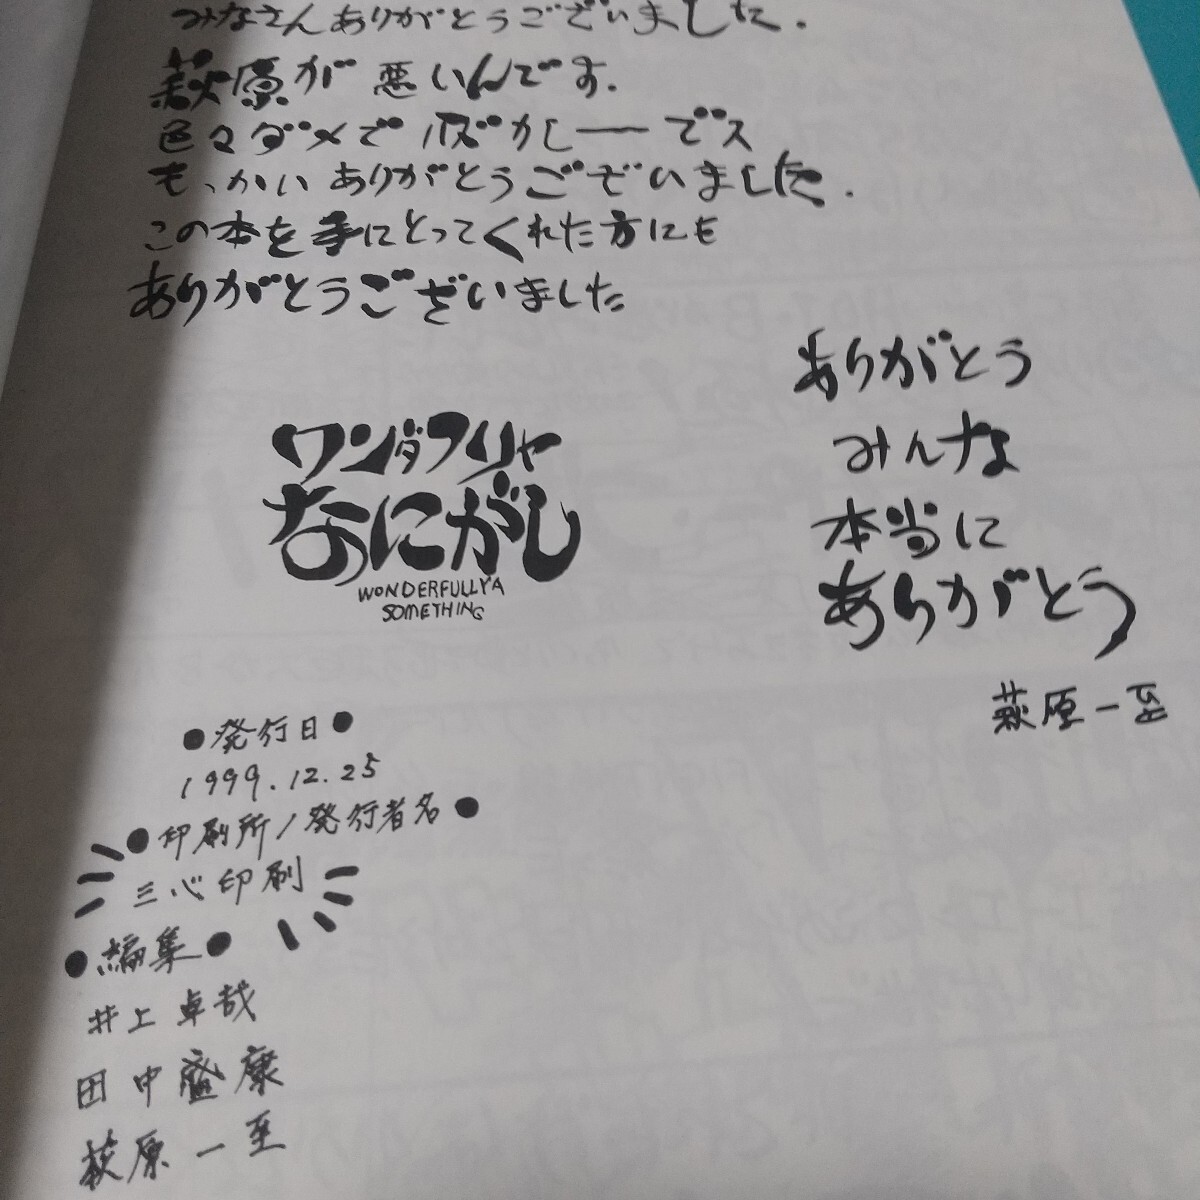 みなさんありがとうございました.
萩原が悪いんです.
色々ダメで ハズかしーーでス
もっかい ありがとうございました.
この本を手にとってくれた方にも
ありがとうございました
ありがとう
みんな
本当に
ありがとう
萩原一至
ワンダフリャ
なにがし
WONDERFULLYA
SOMETHING
●発行日●
1999.12.25
●印刷所/発行者名●
三心印刷
●編集●
井上卓哉
田中盛康
萩原一至